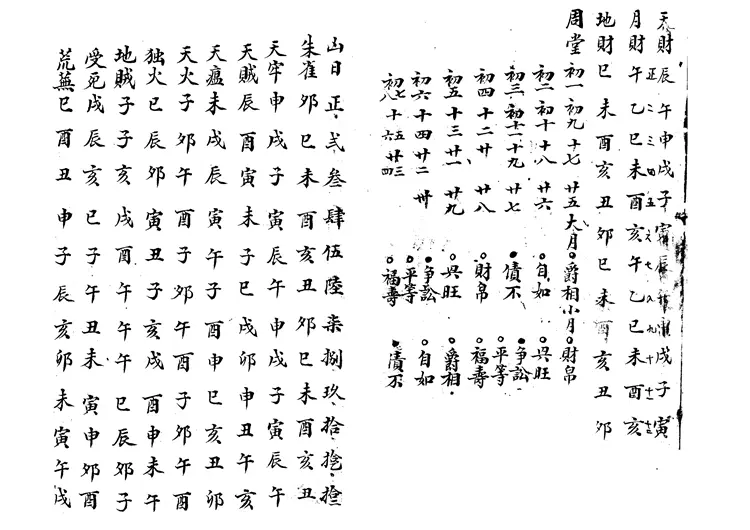 天財辰午申戌子寅辰申戌子寅
月財午乙巳未酉亥午乙巳未酉亥
正二三四五六七八九十十一十二
地財巳未酉亥丑卯巳未酉亥丑卯
周堂初一初九十七廿五大月爵相小月財帛
初二初十十八廿六自如兴旺
初三初十一十九廿七債不爭訟
初四十二廿廿八財帛平等
初五十三廿一廿九兴旺福壽
初六十四廿二卅爭訟爵相
初七十五廿三平等自如
初八十六廿四福壽債不
凶日正弍叁肆伍陸柒捌玖拾
朱雀卯巳未酉亥丑卯巳未酉亥丑
天牢申戌子寅辰午申戌子寅辰午
天賊辰酉寅未子巳戌卯申丑午亥
天瘟未戌辰寅午子酉申巳亥丑卯
天火子卯午酉子卯午酉子卯午酉
独火巳辰卯寅丑子亥戌酉申未午
地賊子子亥戌酉午午午巳辰卯子
受死戌辰亥巳子午丑未寅申卯酉
荒蕪巳酉丑申子辰亥卯未寅午戌